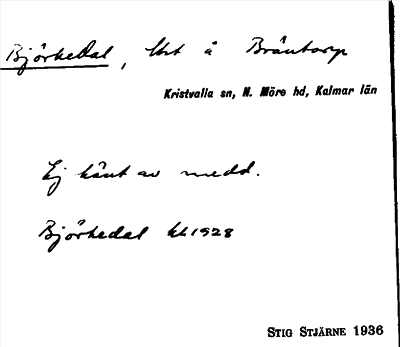 Björkedal, lht å Bräntorp
Kristvalla sn, N. Möre hd, Kalmar län
Ej känt av medd.
Björkedal kk 1928
STIG STJÄRNE 1936